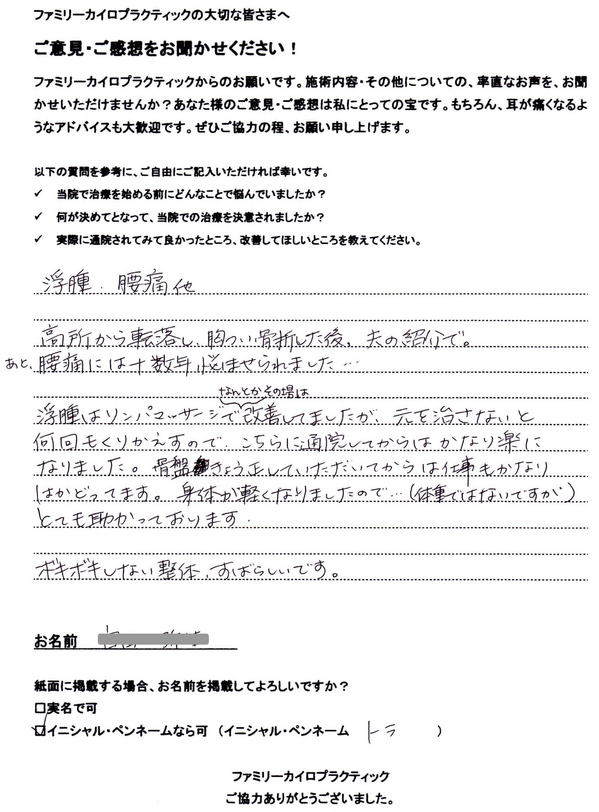 ファミリーカイロプラクティックの大切な皆さまへ
ご意見・ご感想をお聞かせください！
ファミリーカイロプラクティックからのお願いです。施術内容・その他についての、率直なお声を、お聞
かせいただけませんか？あなた様のご意見・ご感想は私にとっての宝です。もちろん、耳が痛くなるよ
うなアドバイスも大歓迎です。ぜひご協力の程、お願い申し上げます。
以下の質問を参考に、ご自由にご記入いただければ幸いです。
✓ 当院で治療を始める前にどんなことで悩んでいましたか？
✓ 何が決めてとなって、当院での治療を決意されましたか？
✓ 実際に通院されてみて良かったところ、改善してほしいところを教えてください。
浮腫、腰痛他
高所から転落し、胸つい骨折した後、夫の紹介で。
あと、腰痛には十数年悩ませられました…
なんとかその場は
浮腫はリンパマッサージで改善してましたが、元を治さないと
何回もくりかえすので、こちらに通院してからは かなり楽に
なりました。骨盤きょう正していただいてからは仕事もかなり
はかどってます。身体が軽くなりましたので…(体重ではないですが)
とても助かっております.
ボキボキしない整体、すばらしいです。
お名前
紙面に掲載する場合、お名前を掲載してよろしいですか？
□実名で可
☑イニシャル・ペンネームなら可 （イニシャル・ペンネーム トラ ）
ファミリーカイロプラクティック
ご協力ありがとうございました。